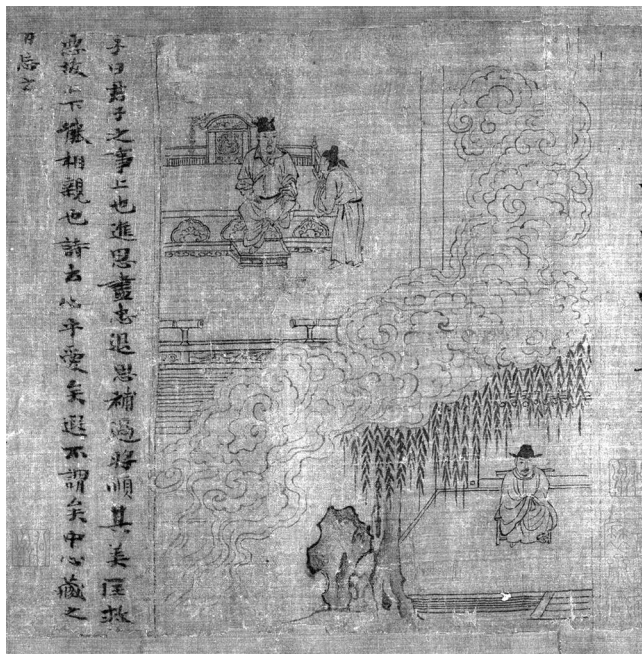 子曰君子之事上也進思盡忠退思補過將順其美匡救
惡故上下能相親也詩云心乎愛矣遐不謂矣中心藏之
日忘之